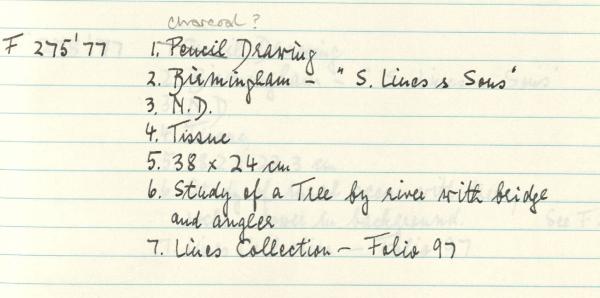 charcoal?
F 275'77 1. Pencil Drawing
2. Birmingham – "S. Lines & Sons"
3. N.D.
4. Tissue
5. 38 x 24 cm
6. Study of a Tree by river with bridge
and angler
7. Lines Collection – Folio 97
See F